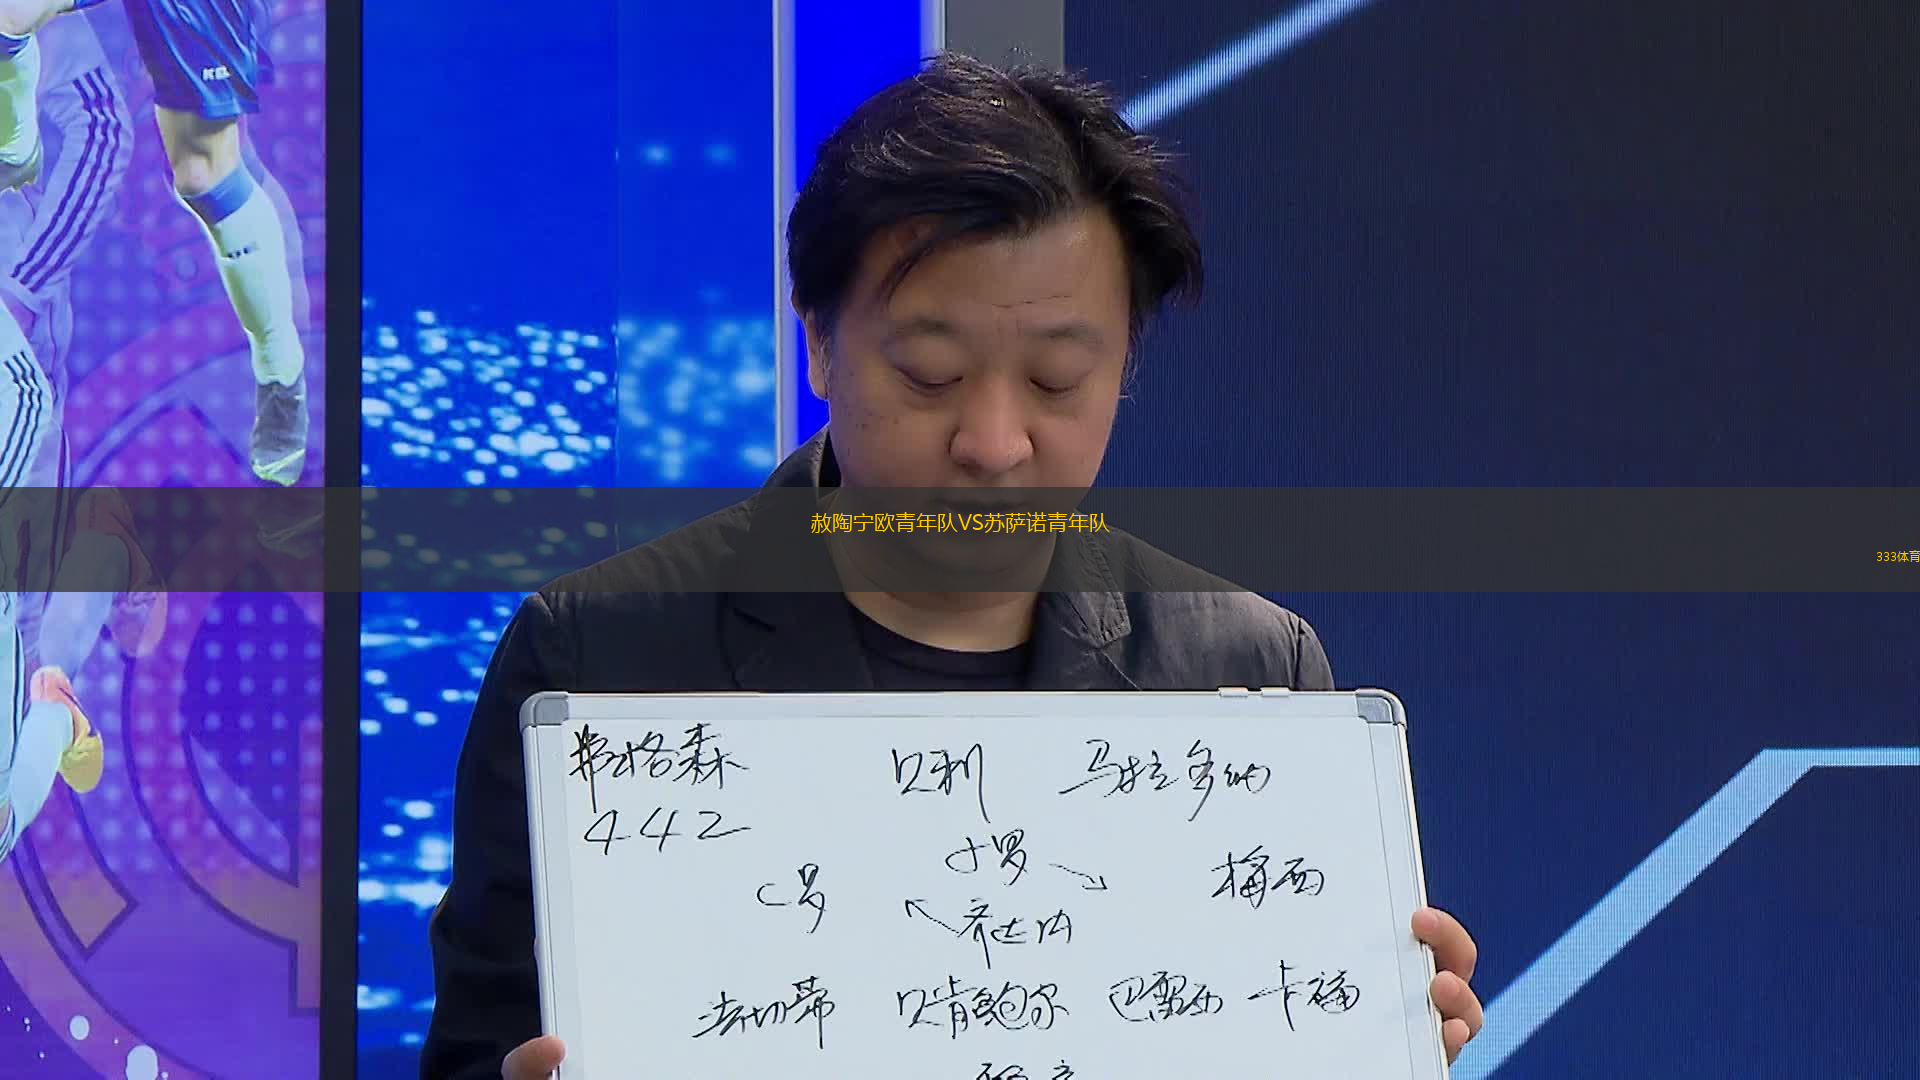 KEL
赦陶宁欧青年队VS苏萨诺青年队
333体育
弗格森 贝利 马拉多纳
442
小罗
C罗 梅西
齐达内
法切蒂 贝肯鲍尔 巴雷西 卡福